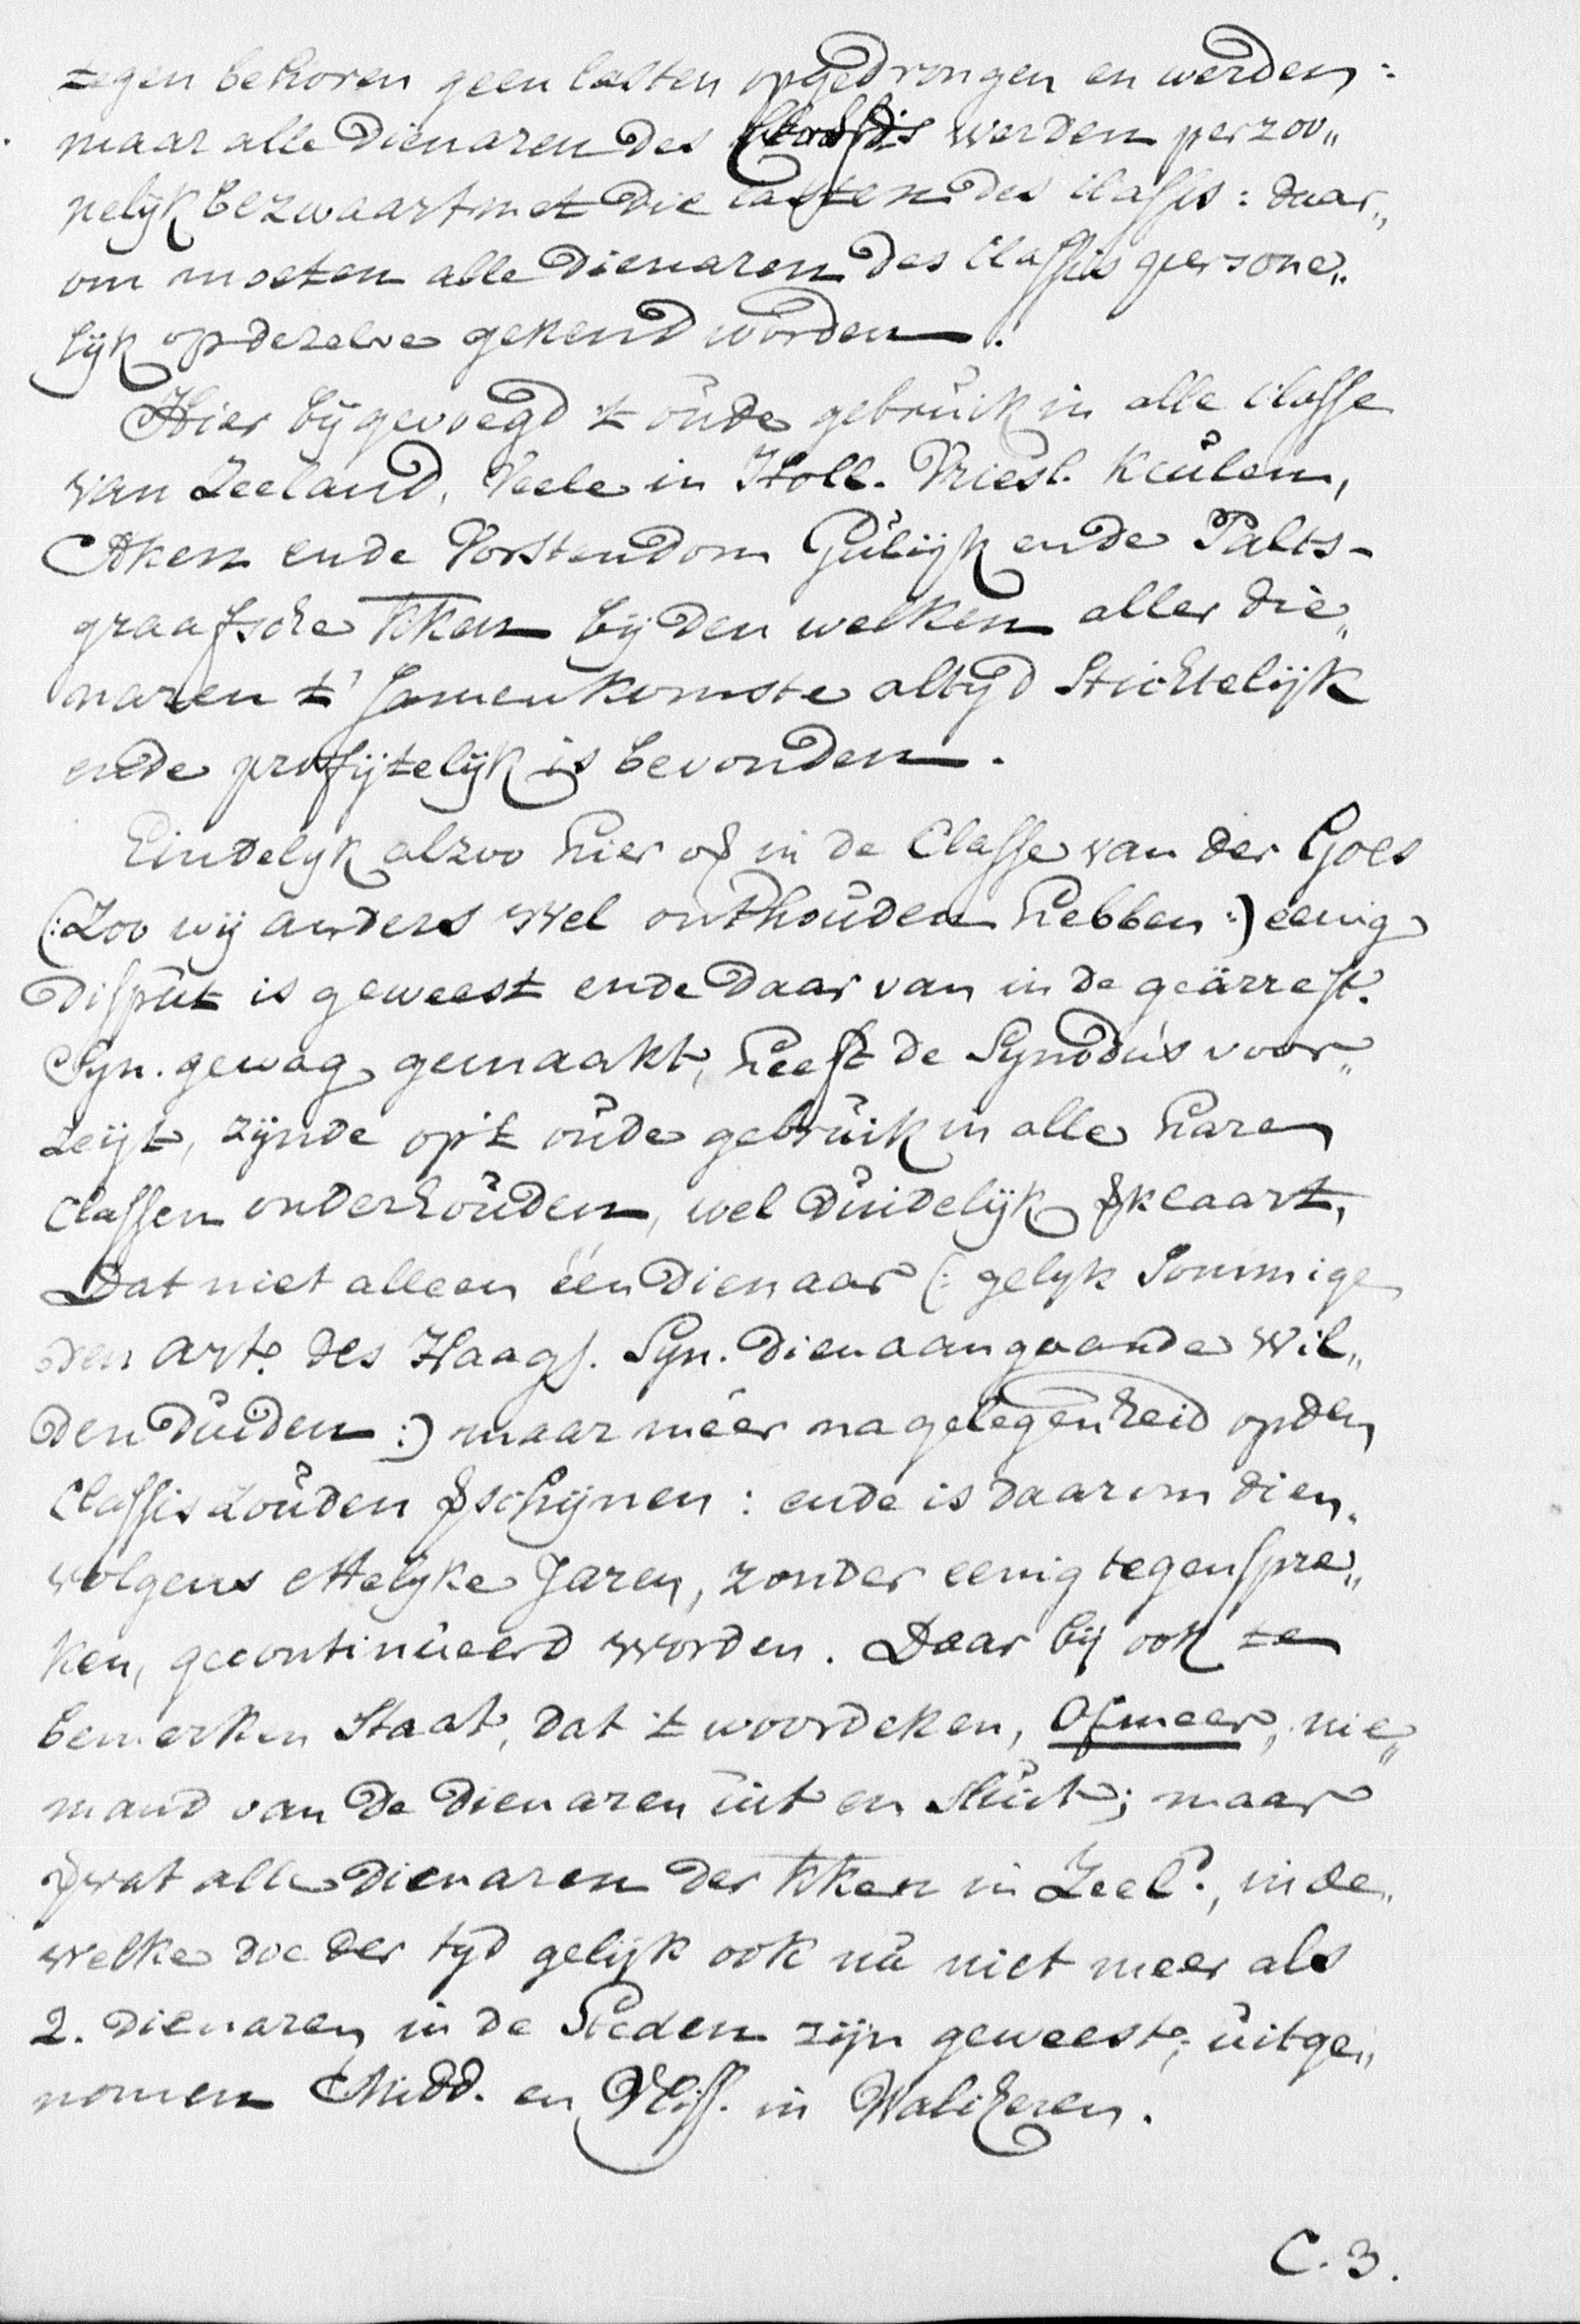 tegen behoren geen lasten opgedrongen en werden:
maar alle Dienaren des Classis werden perzoo„
nelijk bezwaart met die lasten des Classis: daar„
om moeten alle Dienaren des Classis persone„
lijk op dezelve gekend worden.
Hier bij gevoegd 't oude gebruik in alle Classe
van Zeeland, Veele in Holl. Vriesl. Keulen,
Aken ende Vorstendom Gulijk ende Palts-
graafsche kken bij den welken aller die„
naren t' samenkomste altijd stichtelijk
ende profijtelijk is bevonden.
Eindelijk alzoo hier of in de Classe van der Goes
(:Zoo wij anders wel onthouden hebben:) eenig
disput is geweest ende daar van in de geärrest.
Syn. gewag gemaakt, heeft de Synodus voor„
zeijt, zijnde op 't oude gebruik in alle hare
Classen onderhouden, wel duidelijk klaart,
Dat niet alleen één Dienaar (: gelijk sommige
den art. des Haags. Syn. dienaangaande wil„
den duiden:) maar méér na gelegenheid op den
Classis zouden schijnen: ende is daarom dien„
volgens ettelijke Jaren, zonder eenig tegenspre„
ken, gecontinueerd worden. Daar bij ook te
bemerken staat, dat 't woordeken, Of meer, nie„
mand van de Dienaren uit en sluit; maar
vat alle Dienaren der kken in Zeel., in de„
welke doe der tijd gelijk ook nu niet meer als
2. Dienaren in de Steden zijn geweest; uitge„
nomen Midd. en Vliss. in Walcheren.
C. 3.